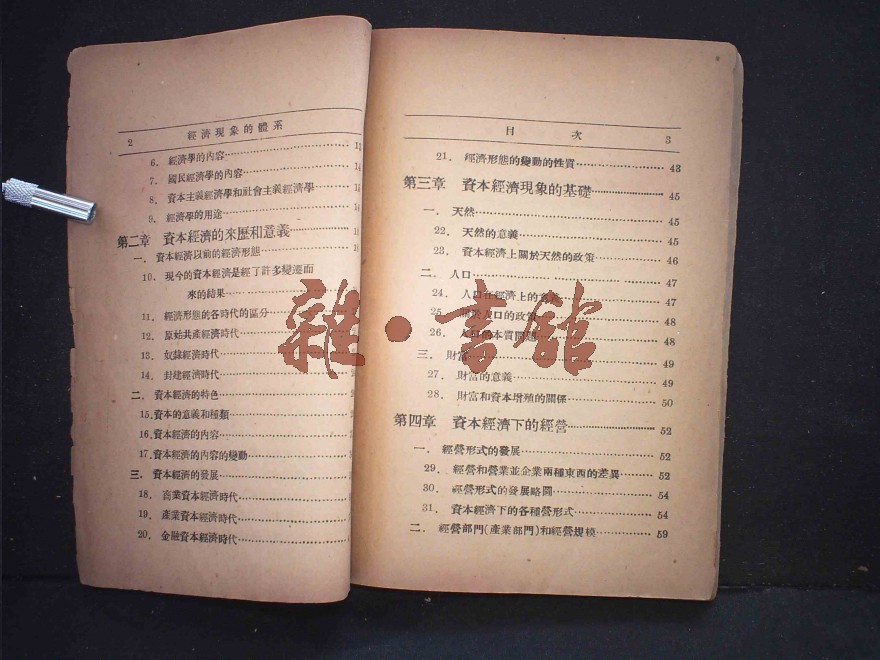 2 經濟現象的體系
6. 經濟學的內容
7. 國民經濟學的內容
8. 資本主義經濟學和社會主義經濟學
9. 經濟學的用途
第二章 資本經濟的來歷和意義
一. 資本經濟以前的經濟形態
10. 現今的資本經濟是經了許多變遷而
來的結果
11. 經濟形態的各時代的區分
12. 原始共產經濟時代
13. 奴隸經濟時代
14. 封建經濟時代
二. 資本經濟的特色
15. 資本的意義和種類
16. 資本經濟的內容
17. 資本經濟的內容的變動
三. 資本經濟的發展
18. 商業資本經濟時代
19. 產業資本經濟時代
20. 金融資本經濟時代
目 次 3
21. 經濟形態的變動的性質 43
第三章 資本經濟現象的基礎 45
一. 天然 45
22. 天然的意義 45
23. 資本經濟上關於天然的政策 46
二. 人口 47
24. 人口在經濟上的意義 47
25. 關於人口的政策 48
26. 人口的本質問題 48
三. 財富 49
27. 財富的意義 49
28. 財富和資本增殖的關係 50
第四章 資本經濟下的經營 52
一. 經營形式的發展 52
29. 經營和營業並企業兩種東西的差異 52
30. 經營形式的發展略圖 54
31. 資本經濟下的各種營形式 54
二. 經營部門(產業部門)和經營規模 59
雜·書館